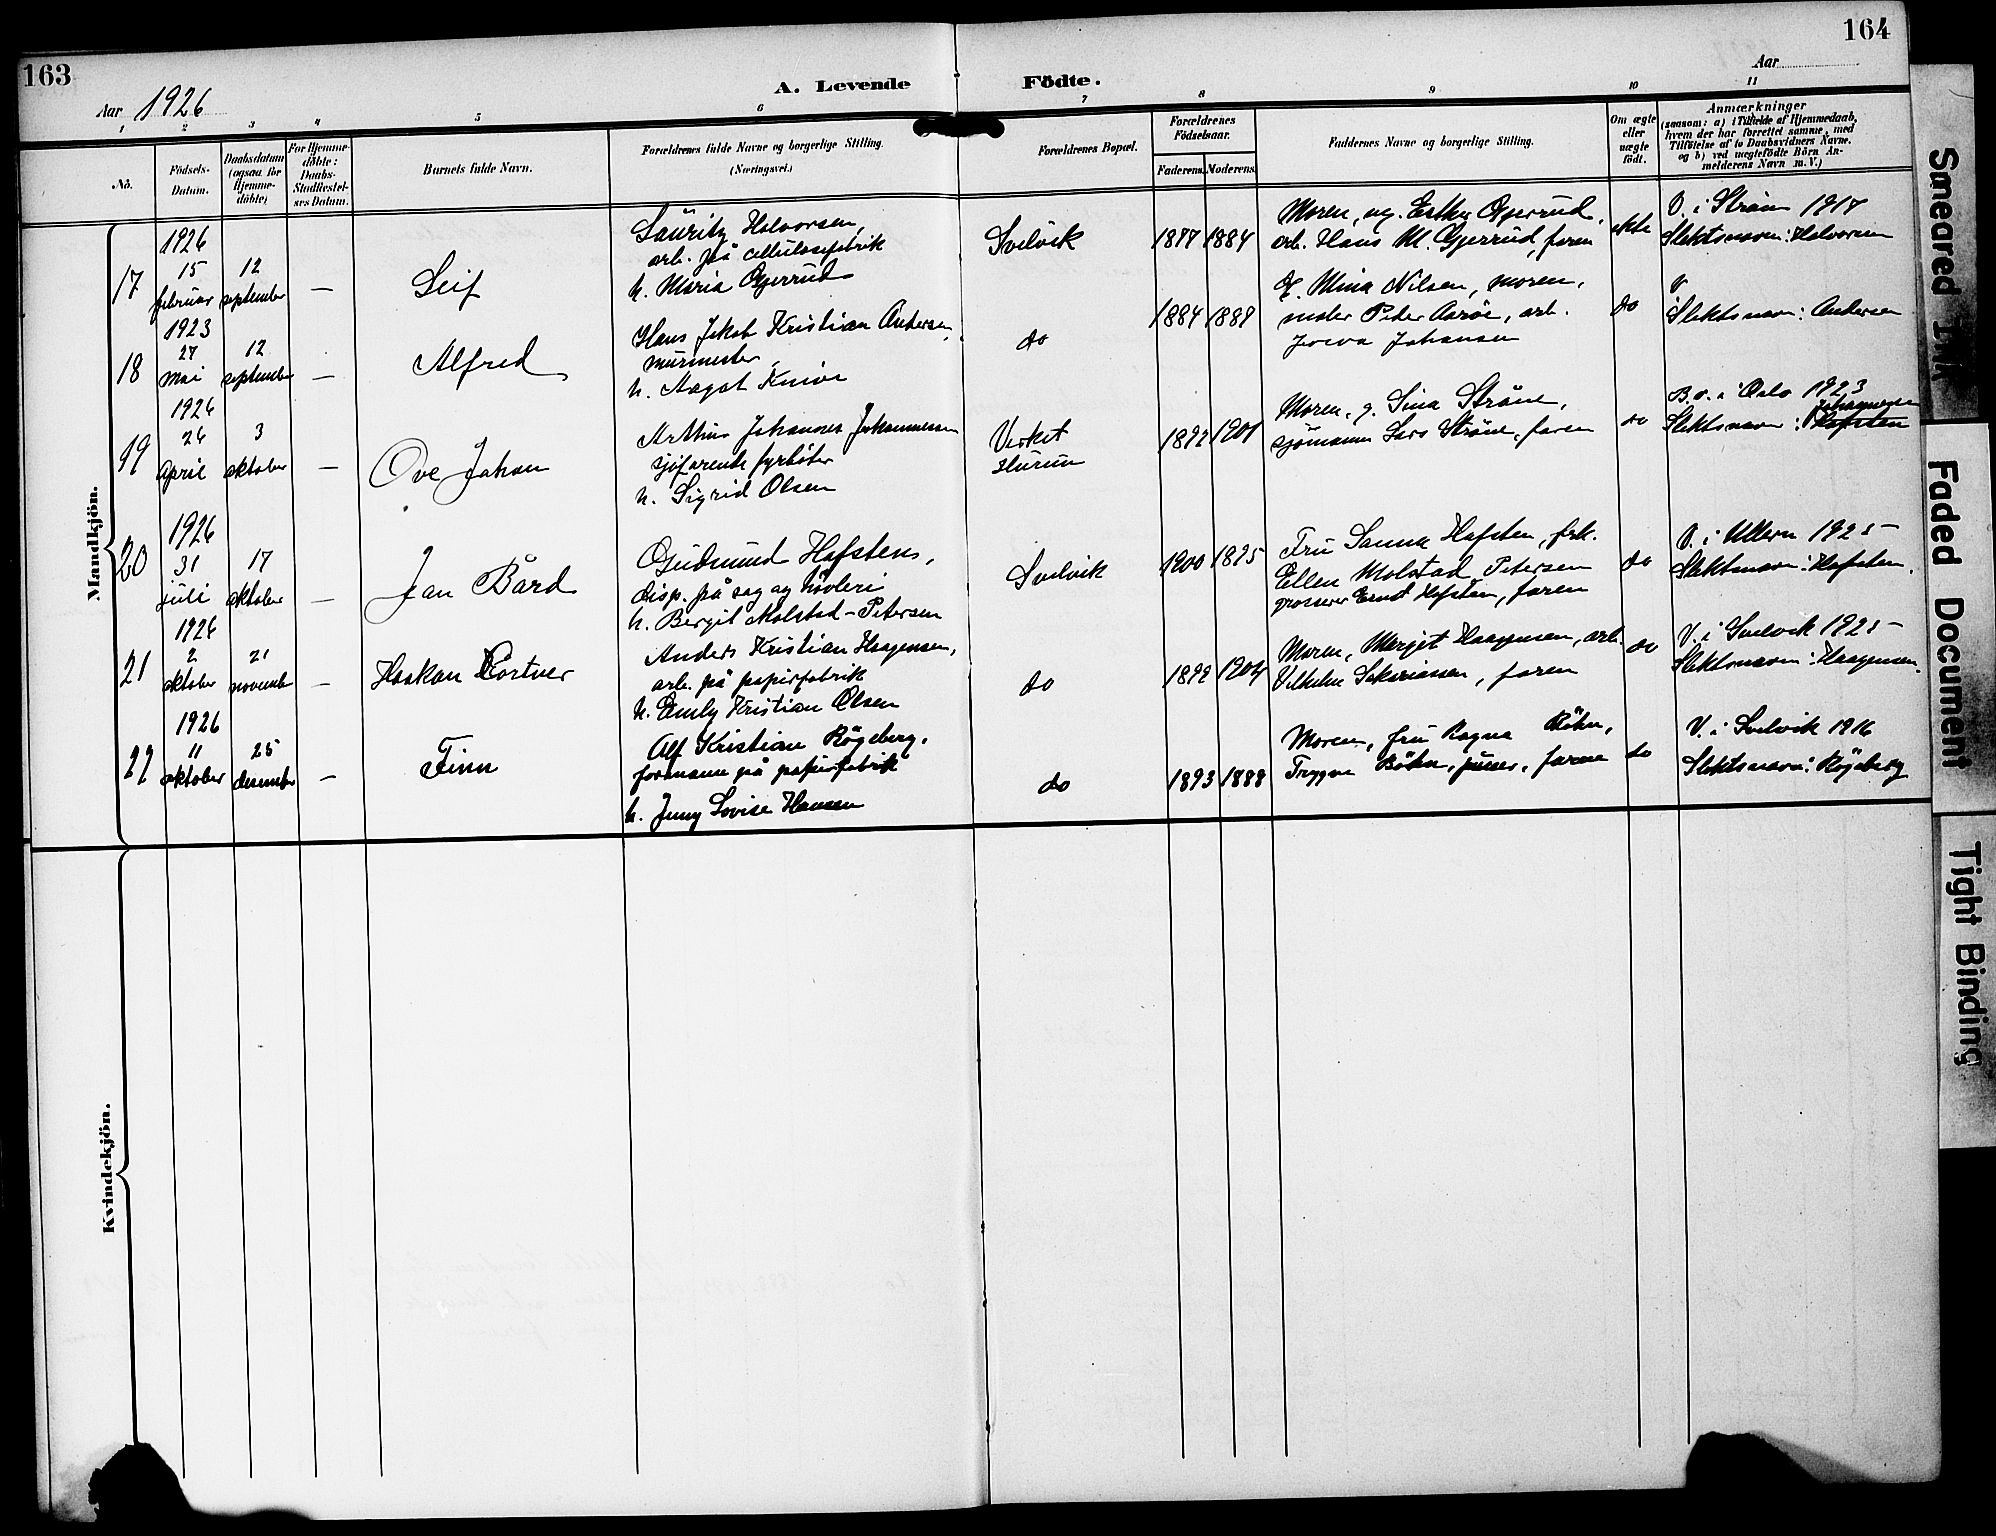 163
164
A. Levende Födte.
Aar 1926
Aar
1 2 3 4 5 6 7 8 9 10 11
No.
Födsels-
Datum.
Daabsdatum
(ogsaa for
Hjemme-
döbte)
For Hjemme-
döbte:
Daabs-
Stadfæstel-
ses Datum.
Barnets fulde Navn.
Forældrenes fulde Navne og borgerlige Stilling.
(Næringsvei.)
Forældrenes Bopæl.
Forældrenes
Födselsaar.
Faderens. Moderens.
Faddernes Navne og borgerlige Stilling.
Om ægte
eller
uægte
födt.
Anmærkninger
(saasom: a) i Tilfælde af Hjemmedaab,
hvem der har forrettet samme, med
Tilföielse af to Daabsvidners Navne.
og b) ved uægtefödte Börn An-
melderens Navn m. V.)
Mandkjön.
17
1926
15
februar
12
september
—
Leif
Lauritz Halvorsen,
arb. på cellulosefabrik
h. Maria Gjerrud
Svelvik
1877 1884
Moren, ug. Esther Gjerrud,
arb. Hans M. Gjerrud, faren
ekte
V. i Strøm 1917
Slektsnavn: Halvorsen
18
1923
27
mai
12
september
—
Alfred
Hans Jakob Kristian Andersen,
murmester
h. Aagot Knive
do
1884 1889
g. Mina Nilsen, moren,
maler Peder Aarøe, arb.
Johansen
do
V
Slektsnavn: Andersen
19
1926
26
April
3
oktober
—
Ove Johan
Arthur Johannes Johannessen
sjøfarende fyrbøter
h. Sigrid Olsen
Verket
Hurum
1892 1901
Moren, g. Sina Strøm,
sjømann Lars Strøm, faren
do
B.v. i Oslo 1923
Johannessen
Slektsnavn: Hafsten
20
1926
31
juli
17
oktober
—
Jan Bård
Gudmund Hafsten,
disp. på sag og høvleri
h. Bergit Molstad-Petersen
Svelvik
1900 1895
Fru Sanna Hafsten, frk.
Ellen Molstad Petersen
grosserer Ernst Hafsten, faren
do
V. i Ullern 1925
Slektsnavn: Hafsten.
21
1926
2
oktober
21
november
—
Haakon
Anders Kristian Haagensen,
arb. på papirfabrik
h. Emly Kristian Olsen
do
1899 1904
Moren, Margit Haagensen, arb.
Vilhelm Sakariassen, faren
do
V. i Svelvik 1925
Slektsnavn: Haagensen.
22
1926
11
oktober
25
desember
—
Finn
Alf Kristian Røgeberg,
formann på papirfabrik
h. Jenny Lovise Hansen
do
1893 1888
Moren, fru Ragna Bøhn,
Trygve Bøhn, faren
do
V. i Svelvik 1916
Slektsnavn: Røgeberg
Kvindekjön.
Smeared Ink
Faded Document
Tight Binding